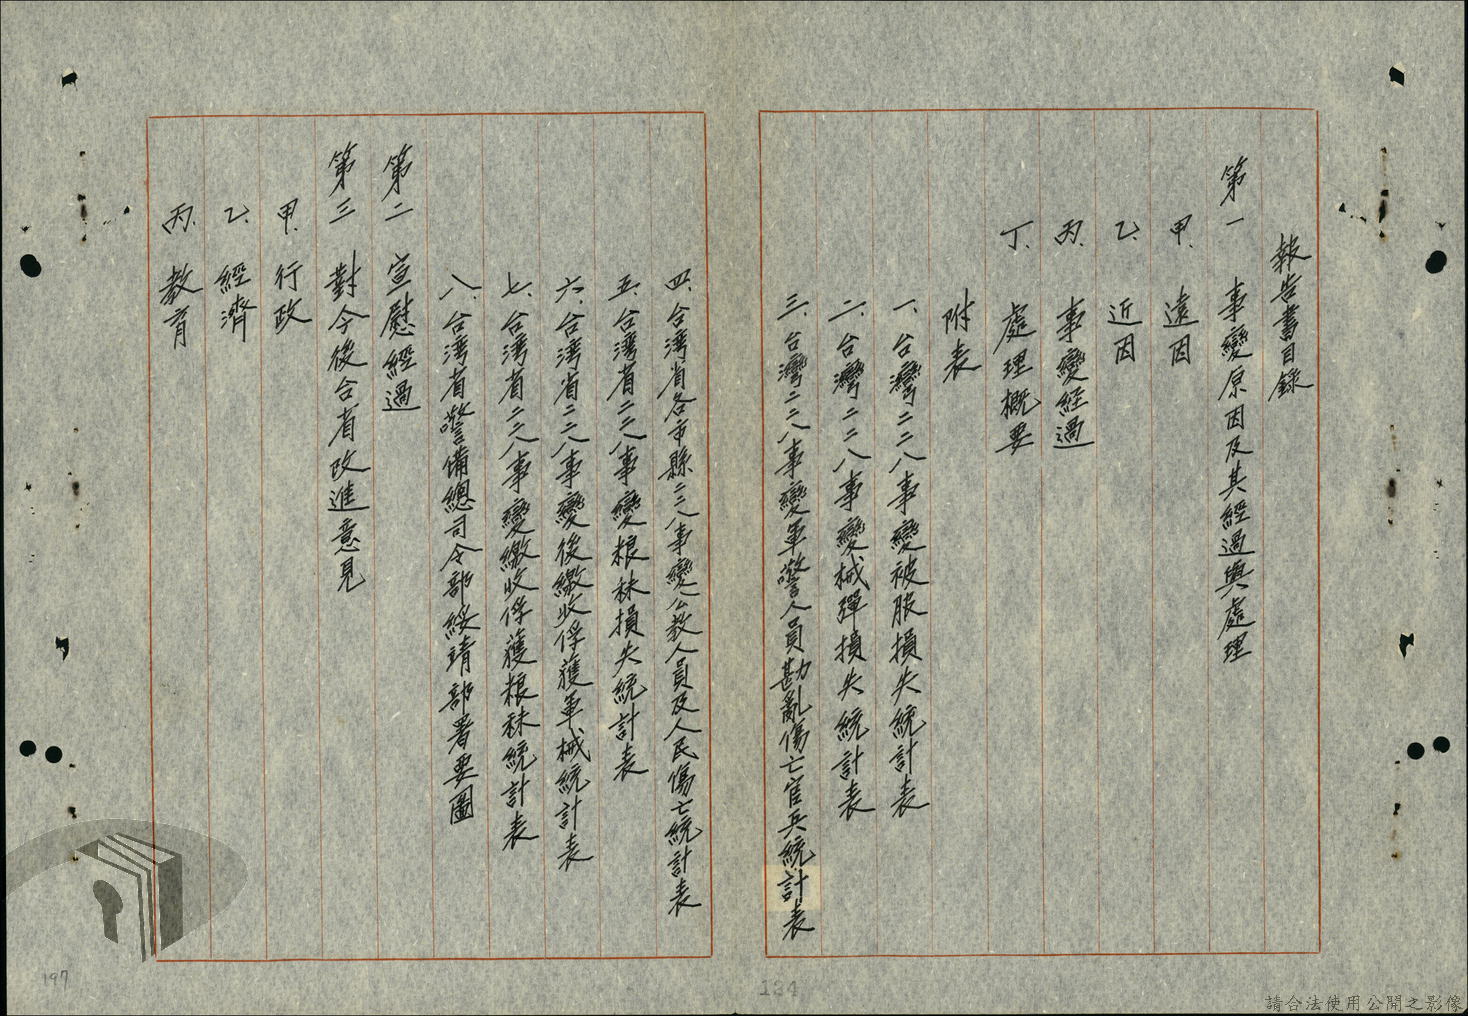 報告書目錄
第一 事變原因及其經過與處理
甲、遠因
乙、近因
丙、事變經過
丁、處理概要
附表
一、台灣二二八事變被服損失統計表
二、台灣二二八事變械彈損失統計表
三、台灣二二八事變軍警人員勘亂傷亡官兵統計表
四、台湾省各市縣二二八事變公教人員及人民傷亡統計表
五、台湾省二二八事變粮秣損失統計表
六、台湾省二二八事變後繳收俘獲軍械統計表
七、台湾省二二八事變繳收俘獲粮秣統計表
八、台湾省警備總司令部綏靖部署要圖
第二 宣慰經過
第三 對今後台省改進意見
甲、行政
乙、經濟
丙、教育
197
124
請合法使用公開之影像